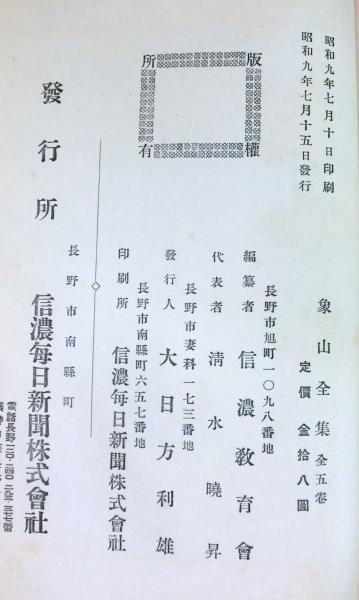 昭和九年七月十日印刷
昭和九年七月十五日發行
象山全集 全五卷
定價 金拾八圓
版權所有
長野市旭町一〇九八番地
編纂者 信濃教育會
代表者 淸水曉昇
長野市妻科一七三番地
發行人 大日方利雄
長野市南縣町六五七番地
印刷所 信濃每日新聞株式會社
長野市南縣町
發行所 信濃每日新聞株式會社
電話長野